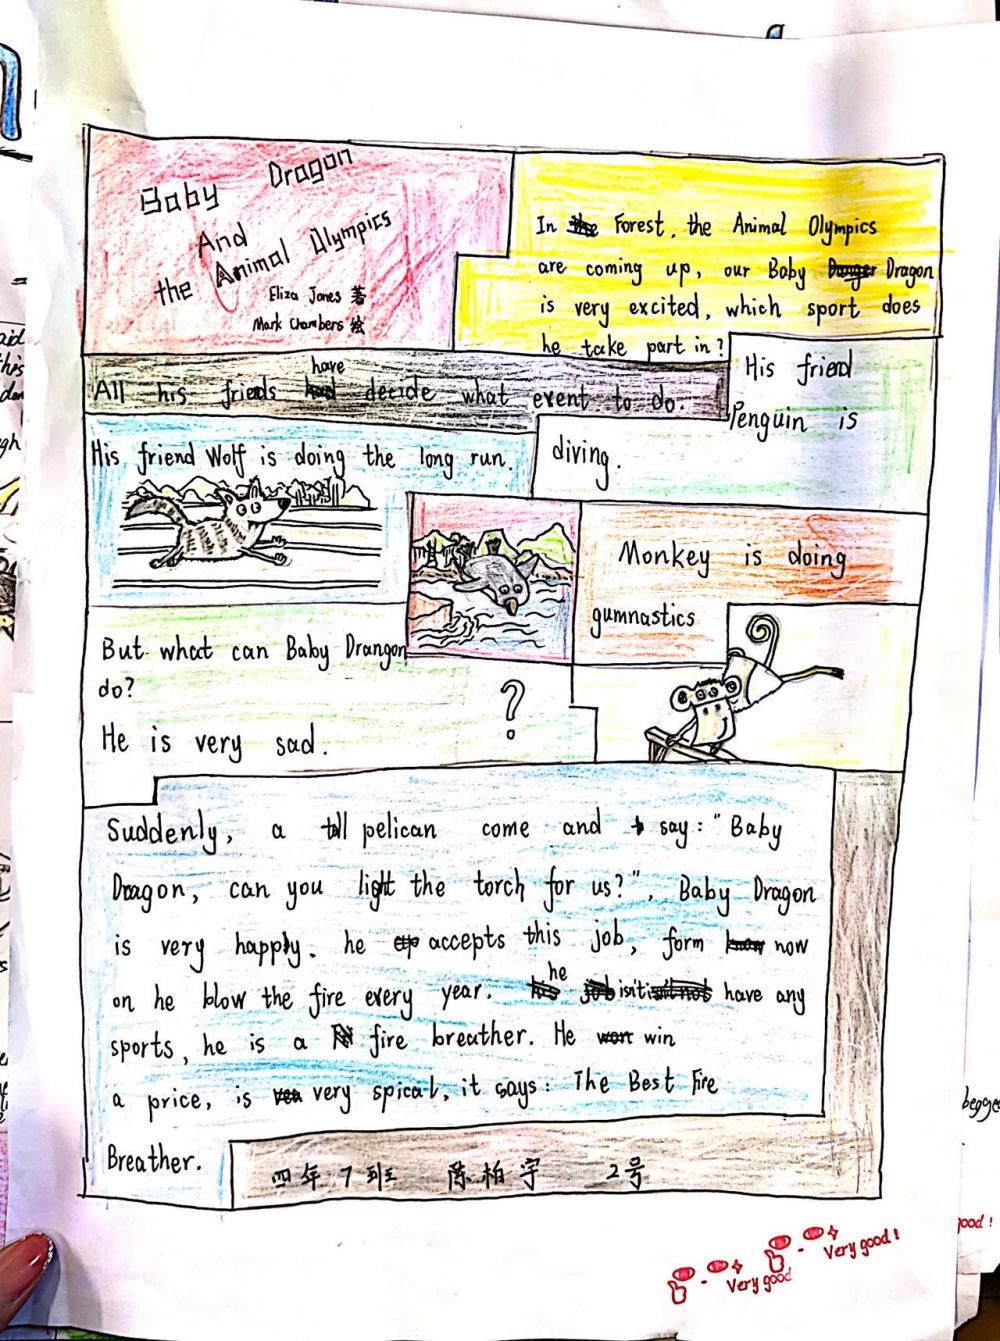 Baby Dragon
And
the Animal Olympics
Eliza Jones 著
Mark Chambers 绘
In the Forest, the Animal Olympics
are coming up, our Baby Danger Dragon
is very excited, which sport does
he take part in?
have
All his friends had decide what event to do.
His friend
Penguin is
diving.
His friend Wolf is doing the long run.
Monkey is doing
gumnastics
But what can Baby Drangon
do?
He is very sad.
?
Suddenly, a tall pelican come and say: "Baby
Dragon, can you light the torch for us?". Baby Dragon
is very happly. he accepts this job, form know now
on he blow the fire every year.
he
his job isn't have any
sports, he is a fire breather. He won win
a price, is very spical, it says: The Best Fire
Breather.
四年7班 陈柏宇 2号
Very good
Very good!
good!
begge